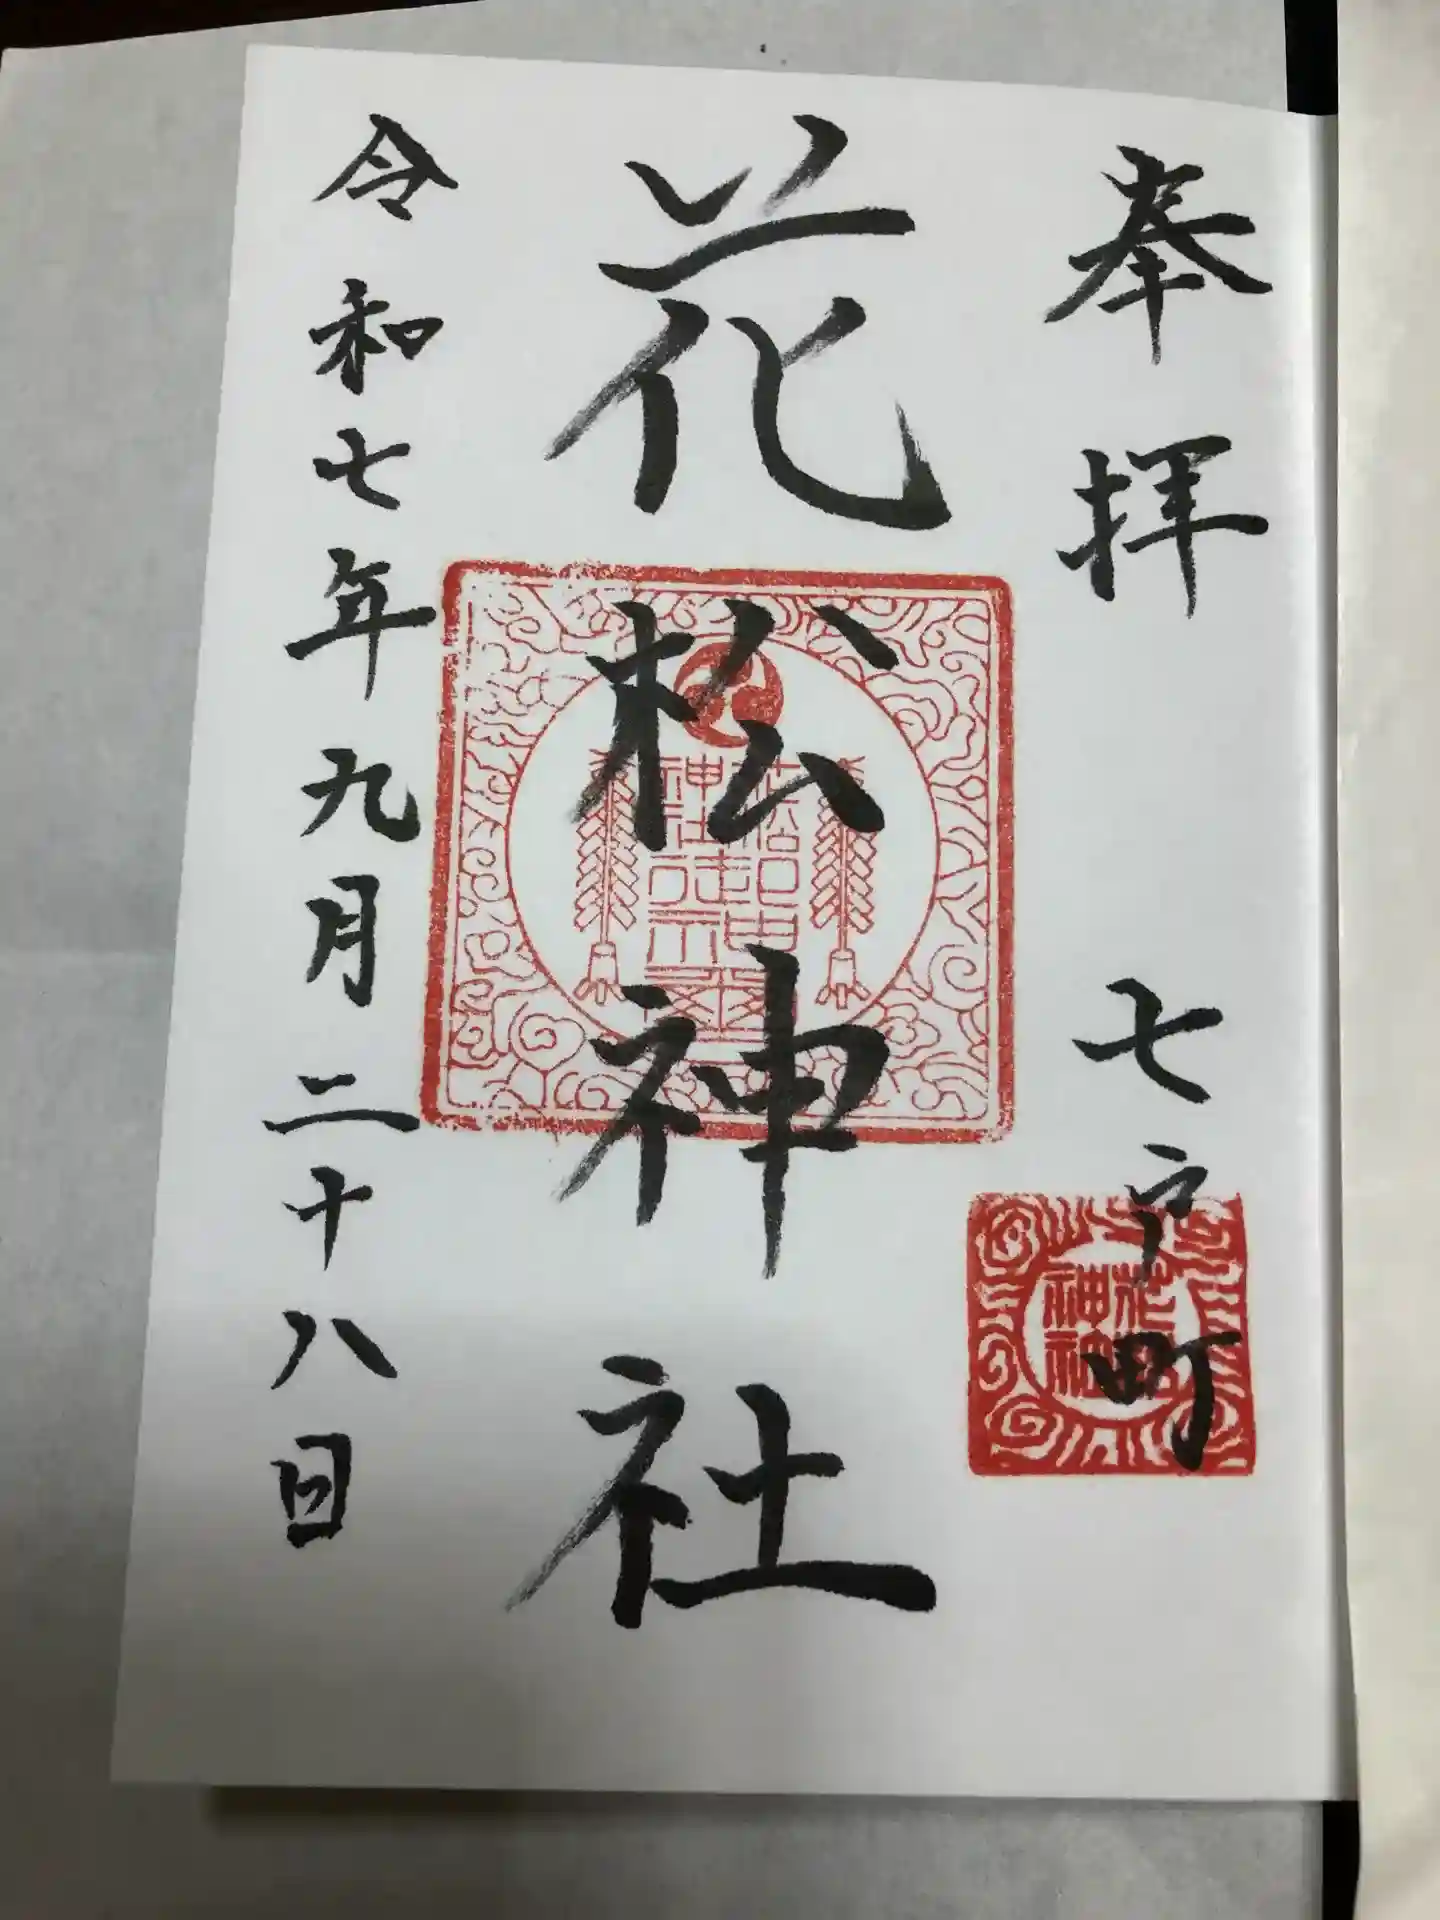 奉拝 七戸町
花松神社
令和七年九月二十八日
花松
神社